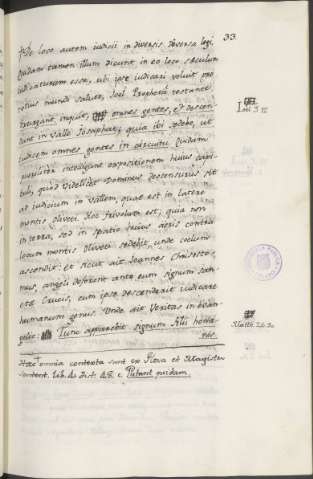 33
De loco autem iudicii in diversis diversa legi,
quidam tamen illum dicunt, in eo loco saeculum
iudicaturum esse, ubi ipse iudicari voluit pro
totius mundi salute, Joel Propheta testante,
inquit, omnes gentes, et descen-
dant in vallem Josaphat, quia ibi sedebo, ut
iudicem omnes gentes in circuitu. Quidam
intelligunt expositionem huius capi-
tuli, quod videlicet Dominus descensurus sit
ad iudicium in vallem, quae est in latere
montis Oliveti. Sed frivolum est, quia non
in terra, sed in spatio huius aeris contra
locum montis Oliveti sedebit, unde coelum
ascendit: et sicut ait Joannes Chrisosto-
mus, angeli deferent ante eum signum san-
ctae Crucis, cum ipse descenderit iudicare
humanum genus. Unde ait Veritas in Evan-
gelio: Tunc apparebit signum Filii homi-
nis.
Haec omnia contenta sunt ex et Magister
Sentent. lib. 4. Dist. 48. c. Putant quidam.
Joel 3. 12
Matth. 24. 30